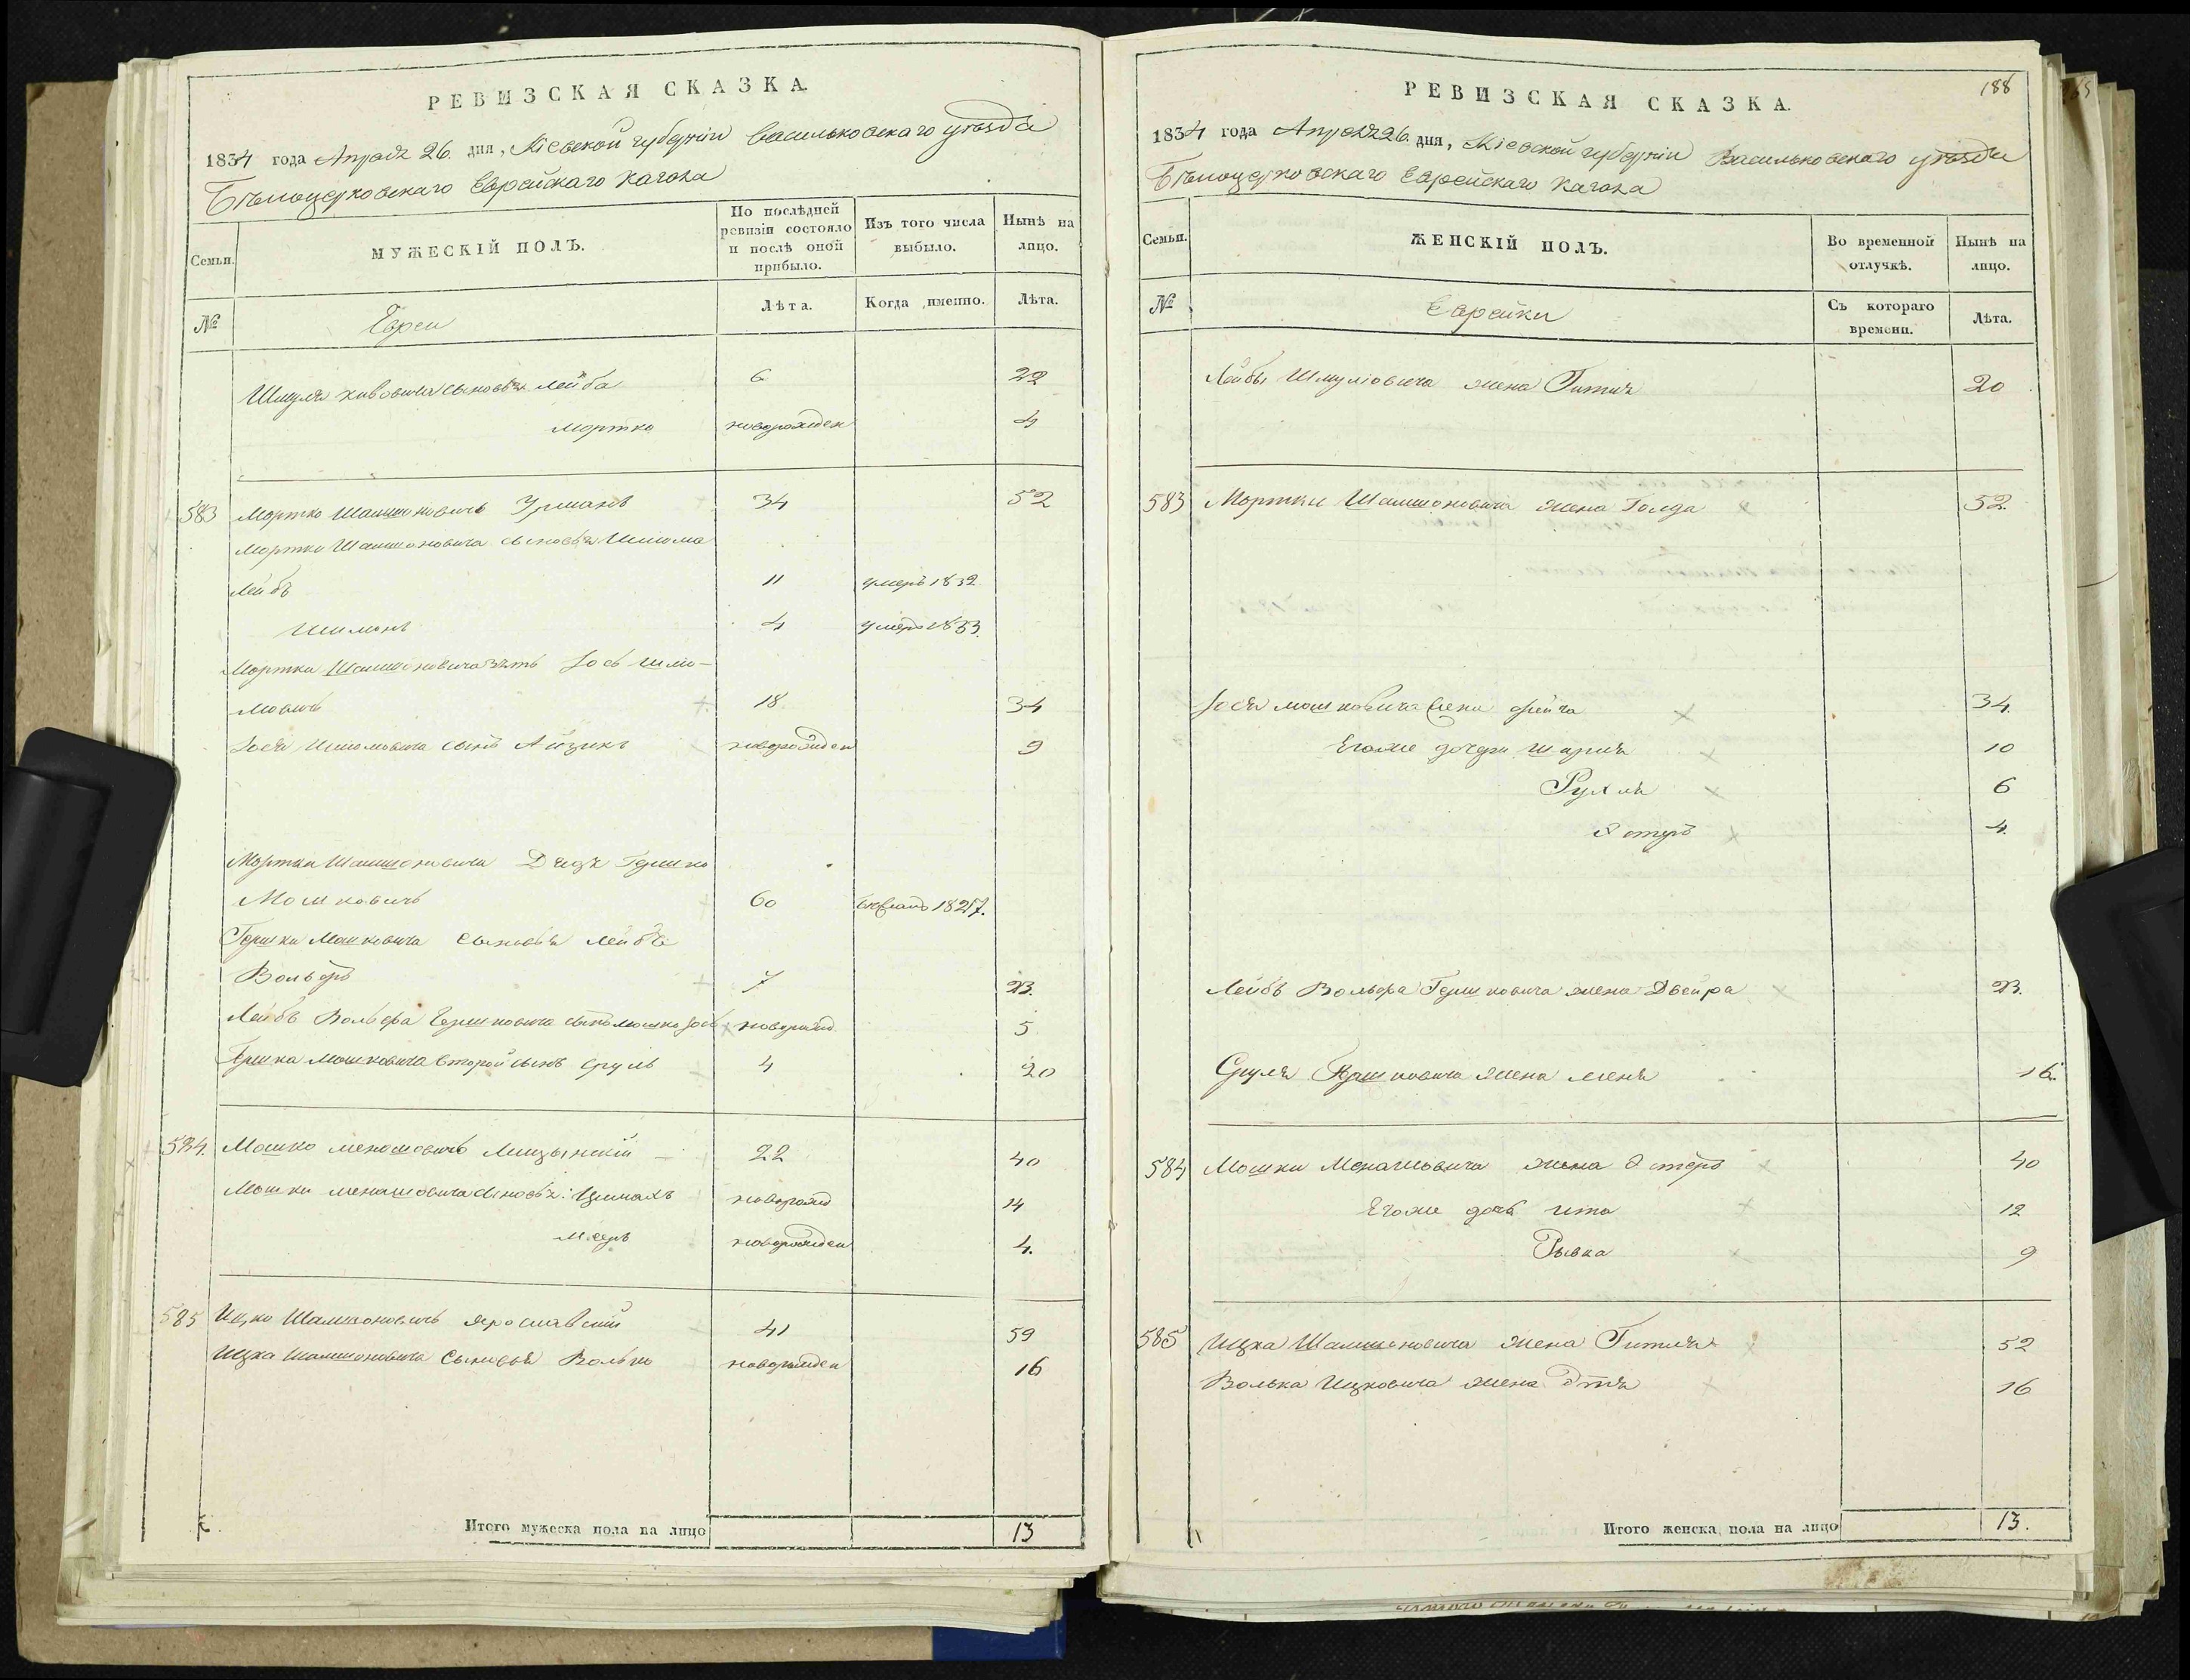 РЕВИЗСКАЯ СКАЗКА.
1834 года Апреля 26. дня, Кіевской губерніи Васильковскаго уѣзда
Бѣлоцерковскаго Еврейскаго Кагала
Семьи.
МУЖЕСКІЙ ПОЛЪ.
По послѣдней ревизіи состояло и послѣ оной прибыло.
Изъ того числа выбыло.
Нынѣ на лицо.
№
Евреи
Лѣта.
Когда именно.
Лѣта.
Шмуля сыновья Лейба 6 22
Мортко новорожден 4
583 Мортко Шамшоновичъ Урманъ 34 52
Мортка Шамшоновича сыновья Шлиома
Лейбъ 11 умеръ 1832
Шимонъ 4 умеръ 1833.
Мортка Шамшоновича зять Іось Шлио-
мовичъ 18 34
Іося Шлиомовича сынъ Айзикъ новорожден 9
Мортка Шамшоновича Дядя Гершко
Мошковичъ 60 1827.
Гершка Мошковича сыновья Лейбъ
Вольфъ 7 23.
Лейбъ Вольфа Гершковича сынъ Мошко Іось новорожд. 5
Гершка Мошковича второй сынъ Сруль 4 20
584. Мошко Менашовичъ 22 40
Мошки Менашовича сыновья: Цимахъ новорожд 14
Мееръ новорожден 4.
585 Ицко Шамшоновичъ Ярославскій 41 59
Ицка Шамшоновича Сыновья Волько новорожден 16
Итого мужеска пола на лицо 13
188
РЕВИЗСКАЯ СКАЗКА.
1834 года Апреля 26. дня, Кіевской губерніи Васильковскаго уѣзда
Бѣлоцерковскаго Еврейскаго Кагала
Семьи.
ЖЕНСКІЙ ПОЛЪ.
Во временной отлучкѣ.
Нынѣ на лицо.
№
Еврейки
Съ котораго времени.
Лѣта.
Лейбы Шмуліовича жена Гитля 20
583 Мортки Шамшоновича жена Голда 52.
Іося Мошковича жена Фейга 34.
Егоже дочери 10
Рухля 6
Эстеръ 4.
Лейбъ Вольфа Гершковича жена Двейра 23.
Сруля Гершковича жена 16.
584 Мошки Менашовича жена Эстеръ 40
Егоже дочь Ита 12
Рывка 9
585 Ицка Шамшоновича жена Гитля 52
Волька Ицковича жена Этля 16
Итого женска пола на лицо 13.